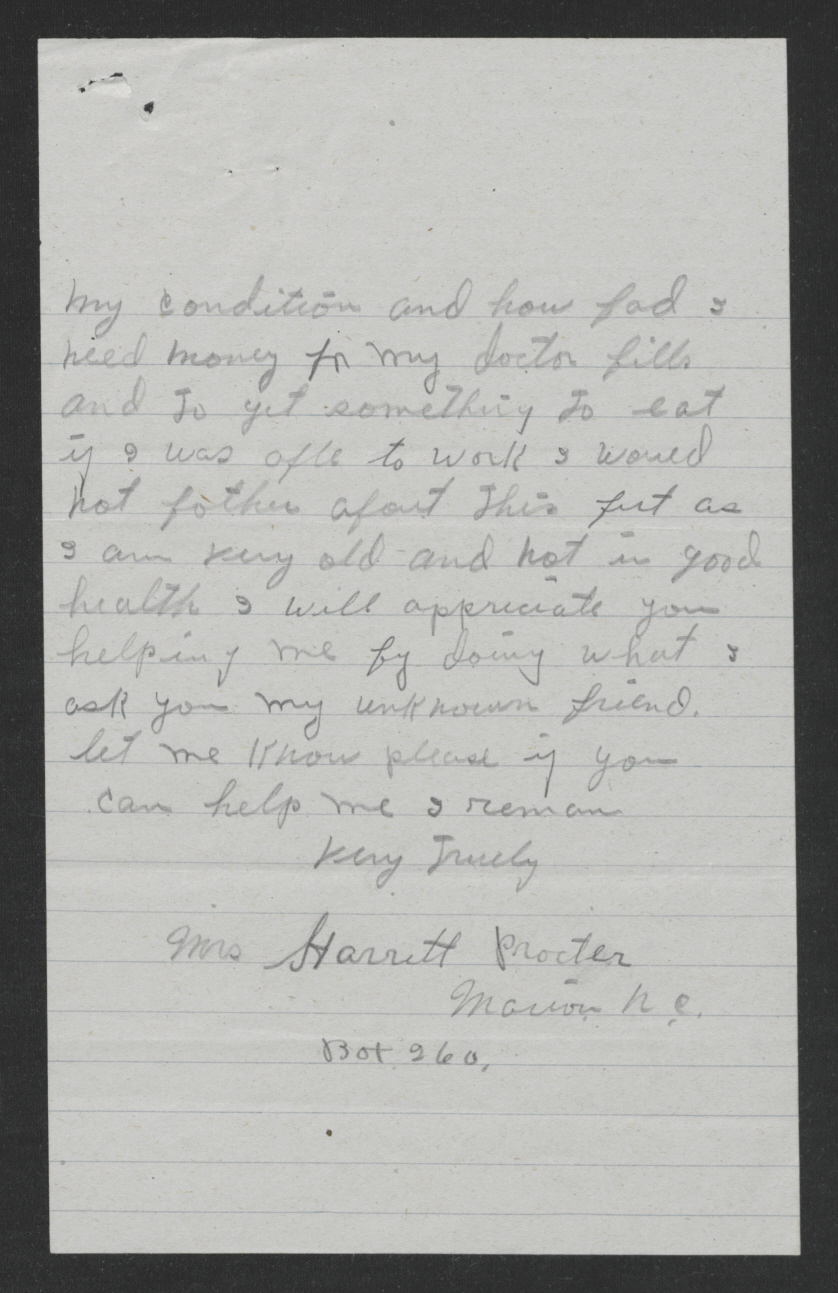 my condition and how bad I
need money for my doctor bills
and to get something to eat
if I was able to work I woued
not bother about this but as
I am very old and not in good
health I will appreciate you
helping me by doing what I
ask you my unknown friend.
let me know please if you
can help me I reman
Very Truely
Mrs Harrett Procter
Marion N.C.
Box 260,